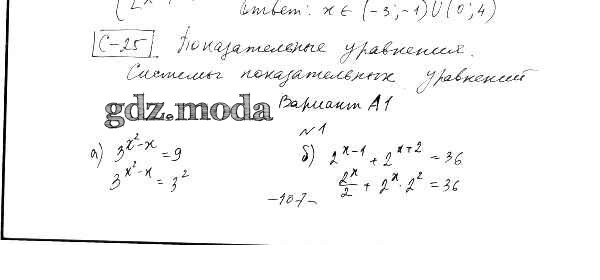 Ответ: x ∈ (-3;-1)∪(0;4)
С-25. Показательные уравнения.
Системы показательных уравнений
gdz.moda Вариант А1
№1
а) 3^{x²-x} = 9 б) 2^{x-1} + 2^{x+2} = 36
3^{x²-x} = 3² 2^x/2 + 2^x · 2² = 36
-107-